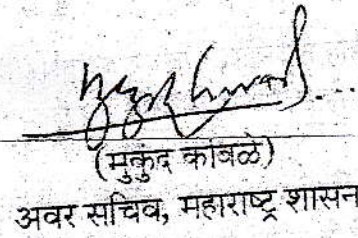 (मुकुंद कांबळे)
अवर सचिव, महाराष्ट्र शासन